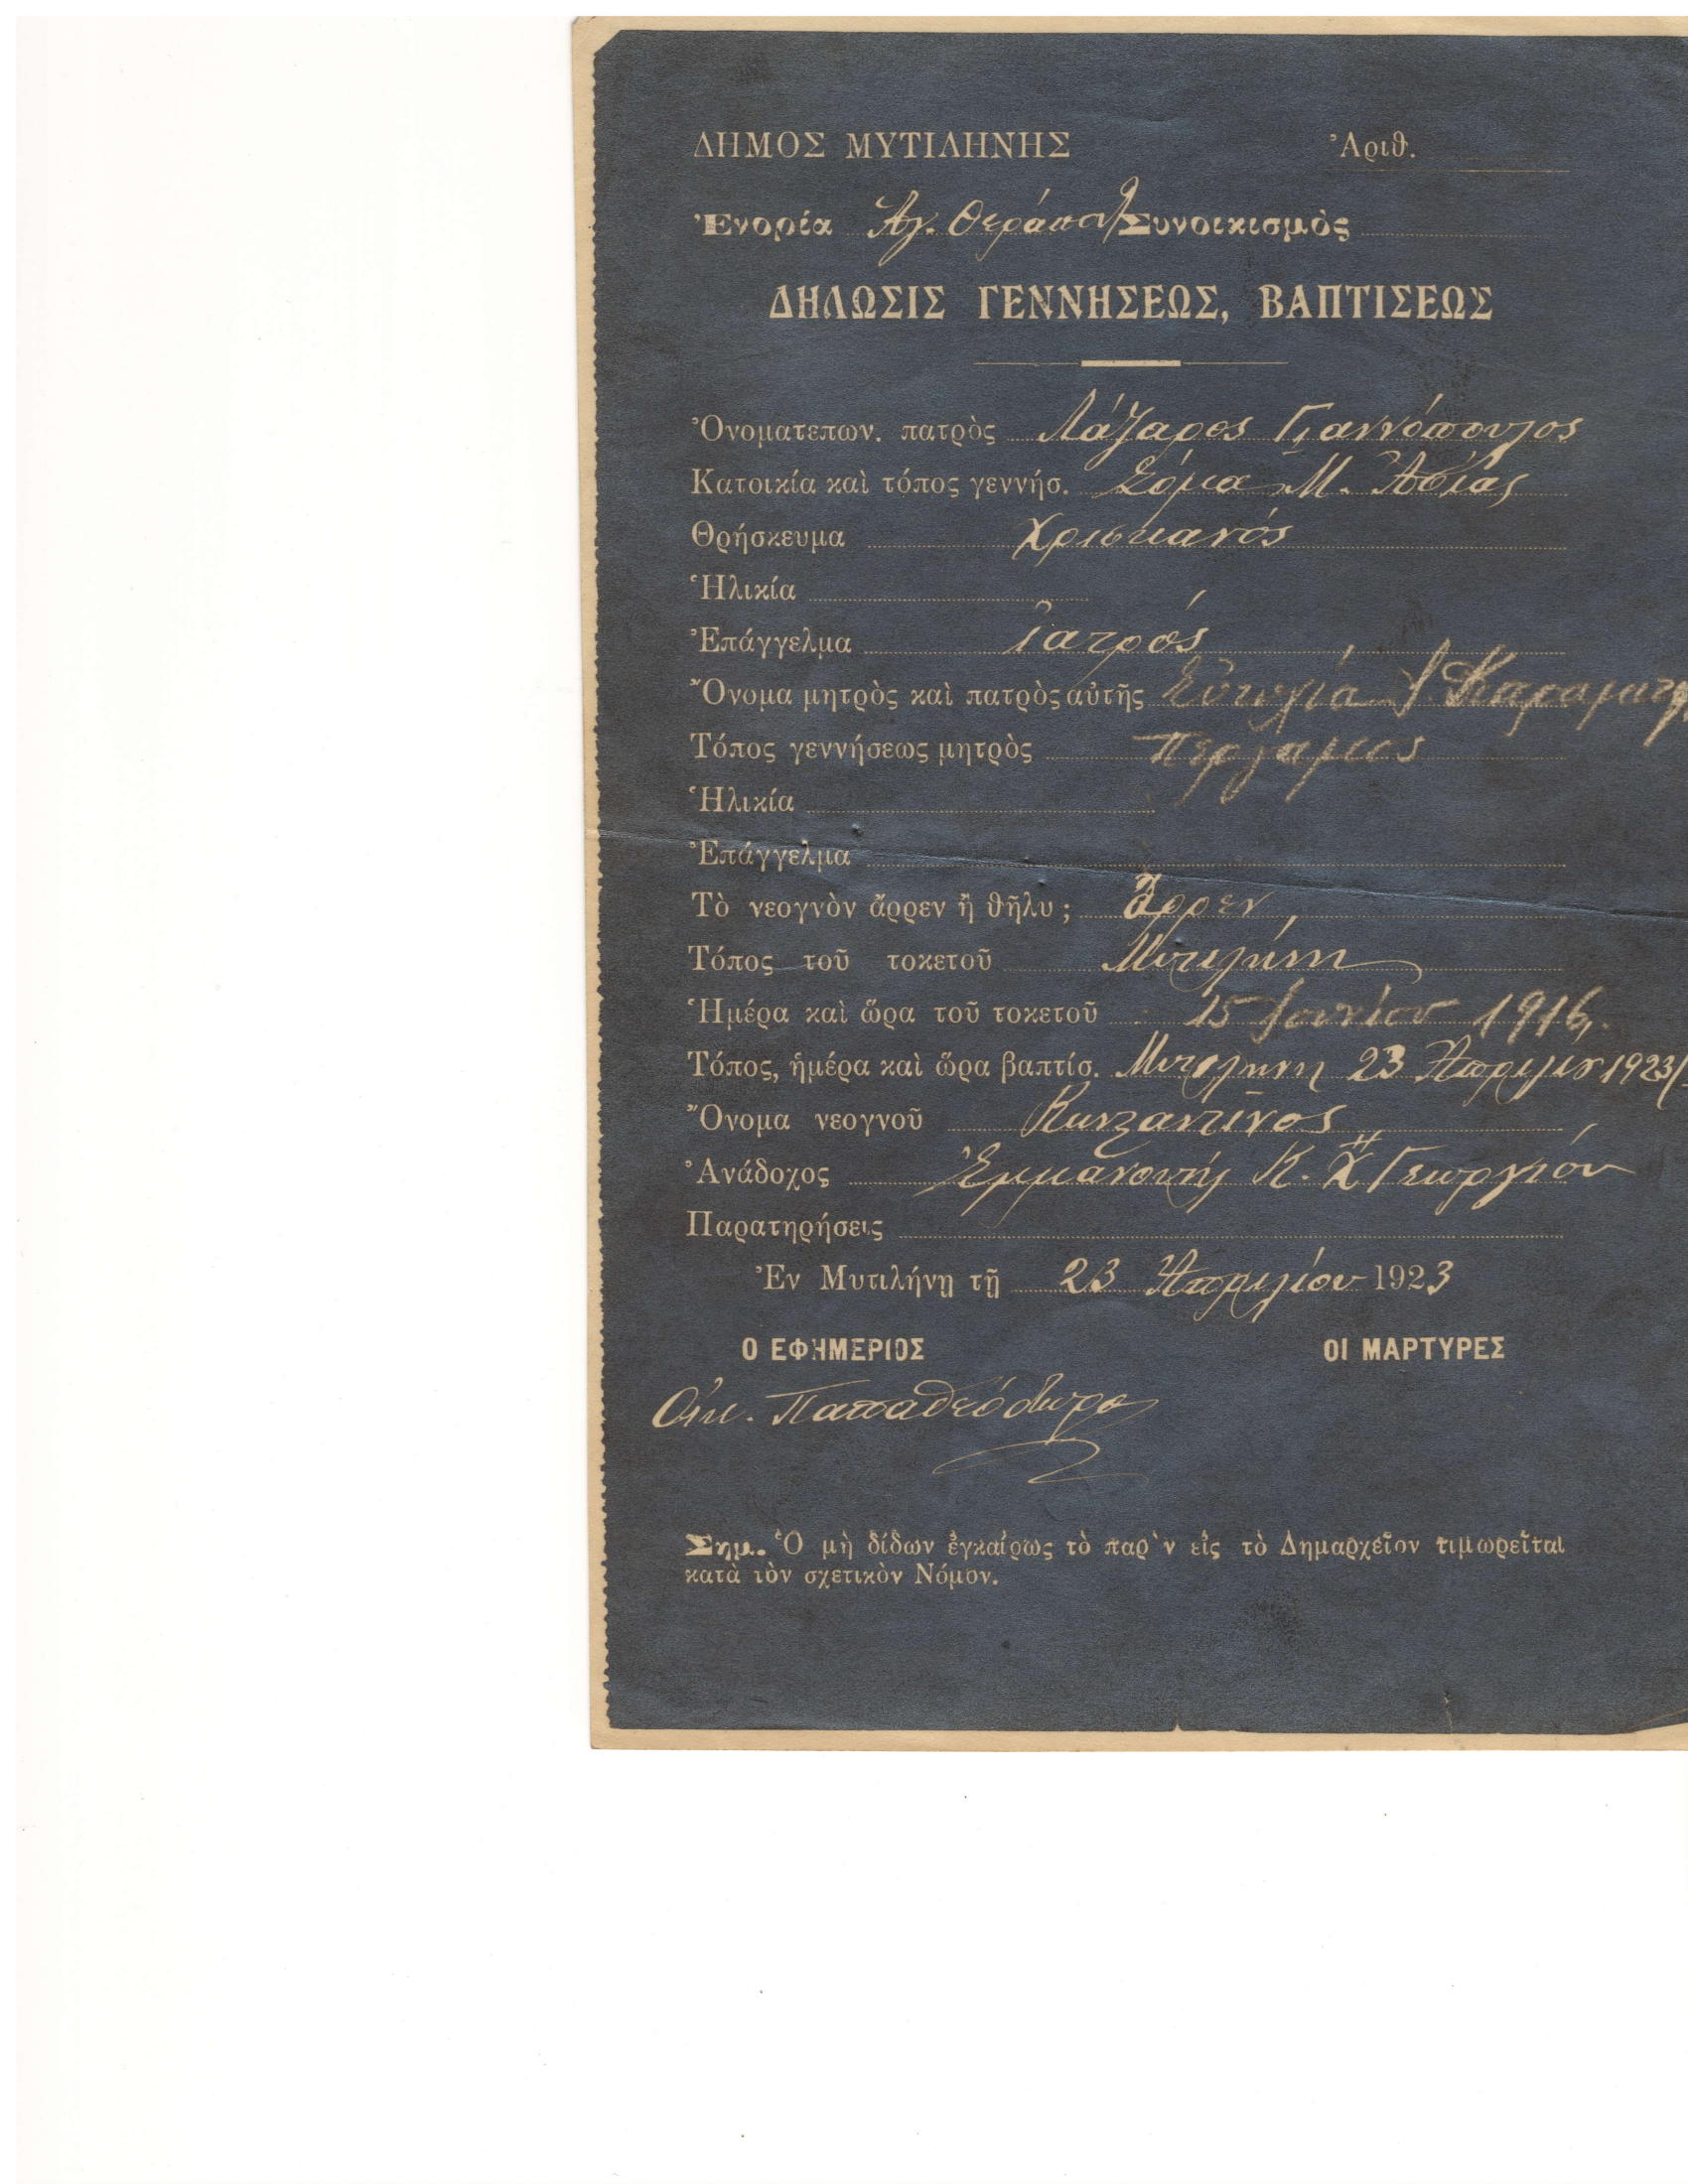 ΔΗΜΟΣ ΜΥΤΙΛΗΝΗΣ Ἀριθ.
Ἐνορία Ἁγ. Θεράπον Συνοικισμὸς
ΔΗΛΩΣΙΣ ΓΕΝΝΗΣΕΩΣ, ΒΑΠΤΙΣΕΩΣ
Ὀνοματεπων. πατρὸς Λάζαρος Γιαννόπουλος
Κατοικία καὶ τόπος γεννήσ. Σόμα Μ. Ἀσίας
Θρήσκευμα Χριστιανός
Ἡλικία
Ἐπάγγελμα Ἰατρός
Ὄνομα μητρὸς καὶ πατρὸς αὐτῆς
Τόπος γεννήσεως μητρὸς Πέργαμος
Ἡλικία
Ἐπάγγελμα
Τὸ νεογνὸν ἄρρεν ἢ θῆλυ ; Ἄρρεν
Τόπος τοῦ τοκετοῦ Μυτιλήνη
Ἡμέρα καὶ ὥρα τοῦ τοκετοῦ 15 Ἰουνίου 1916
Τόπος, ἡμέρα καὶ ὥρα βαπτίσ. Μυτιλήνη 23 Ἀπριλίου 1923
Ὄνομα νεογνοῦ Κωνσταντῖνος
Ἀνάδοχος Ἐμμανουήλ Κ. Χ Γεωργίου
Παρατηρήσεις
Ἐν Μυτιλήνῃ τῇ 23 Ἀπριλίου 1923
Ο ΕΦΗΜΕΡΙΟΣ ΟΙ ΜΑΡΤΥΡΕΣ
Οἰκ. Παπαθεόδωρο
Σημ. Ὁ μὴ δίδων ἐγκαίρως τὸ παρ`ν εἰς τὸ Δημαρχεῖον τιμωρεῖται
κατὰ τὸν σχετικὸν Νόμον.